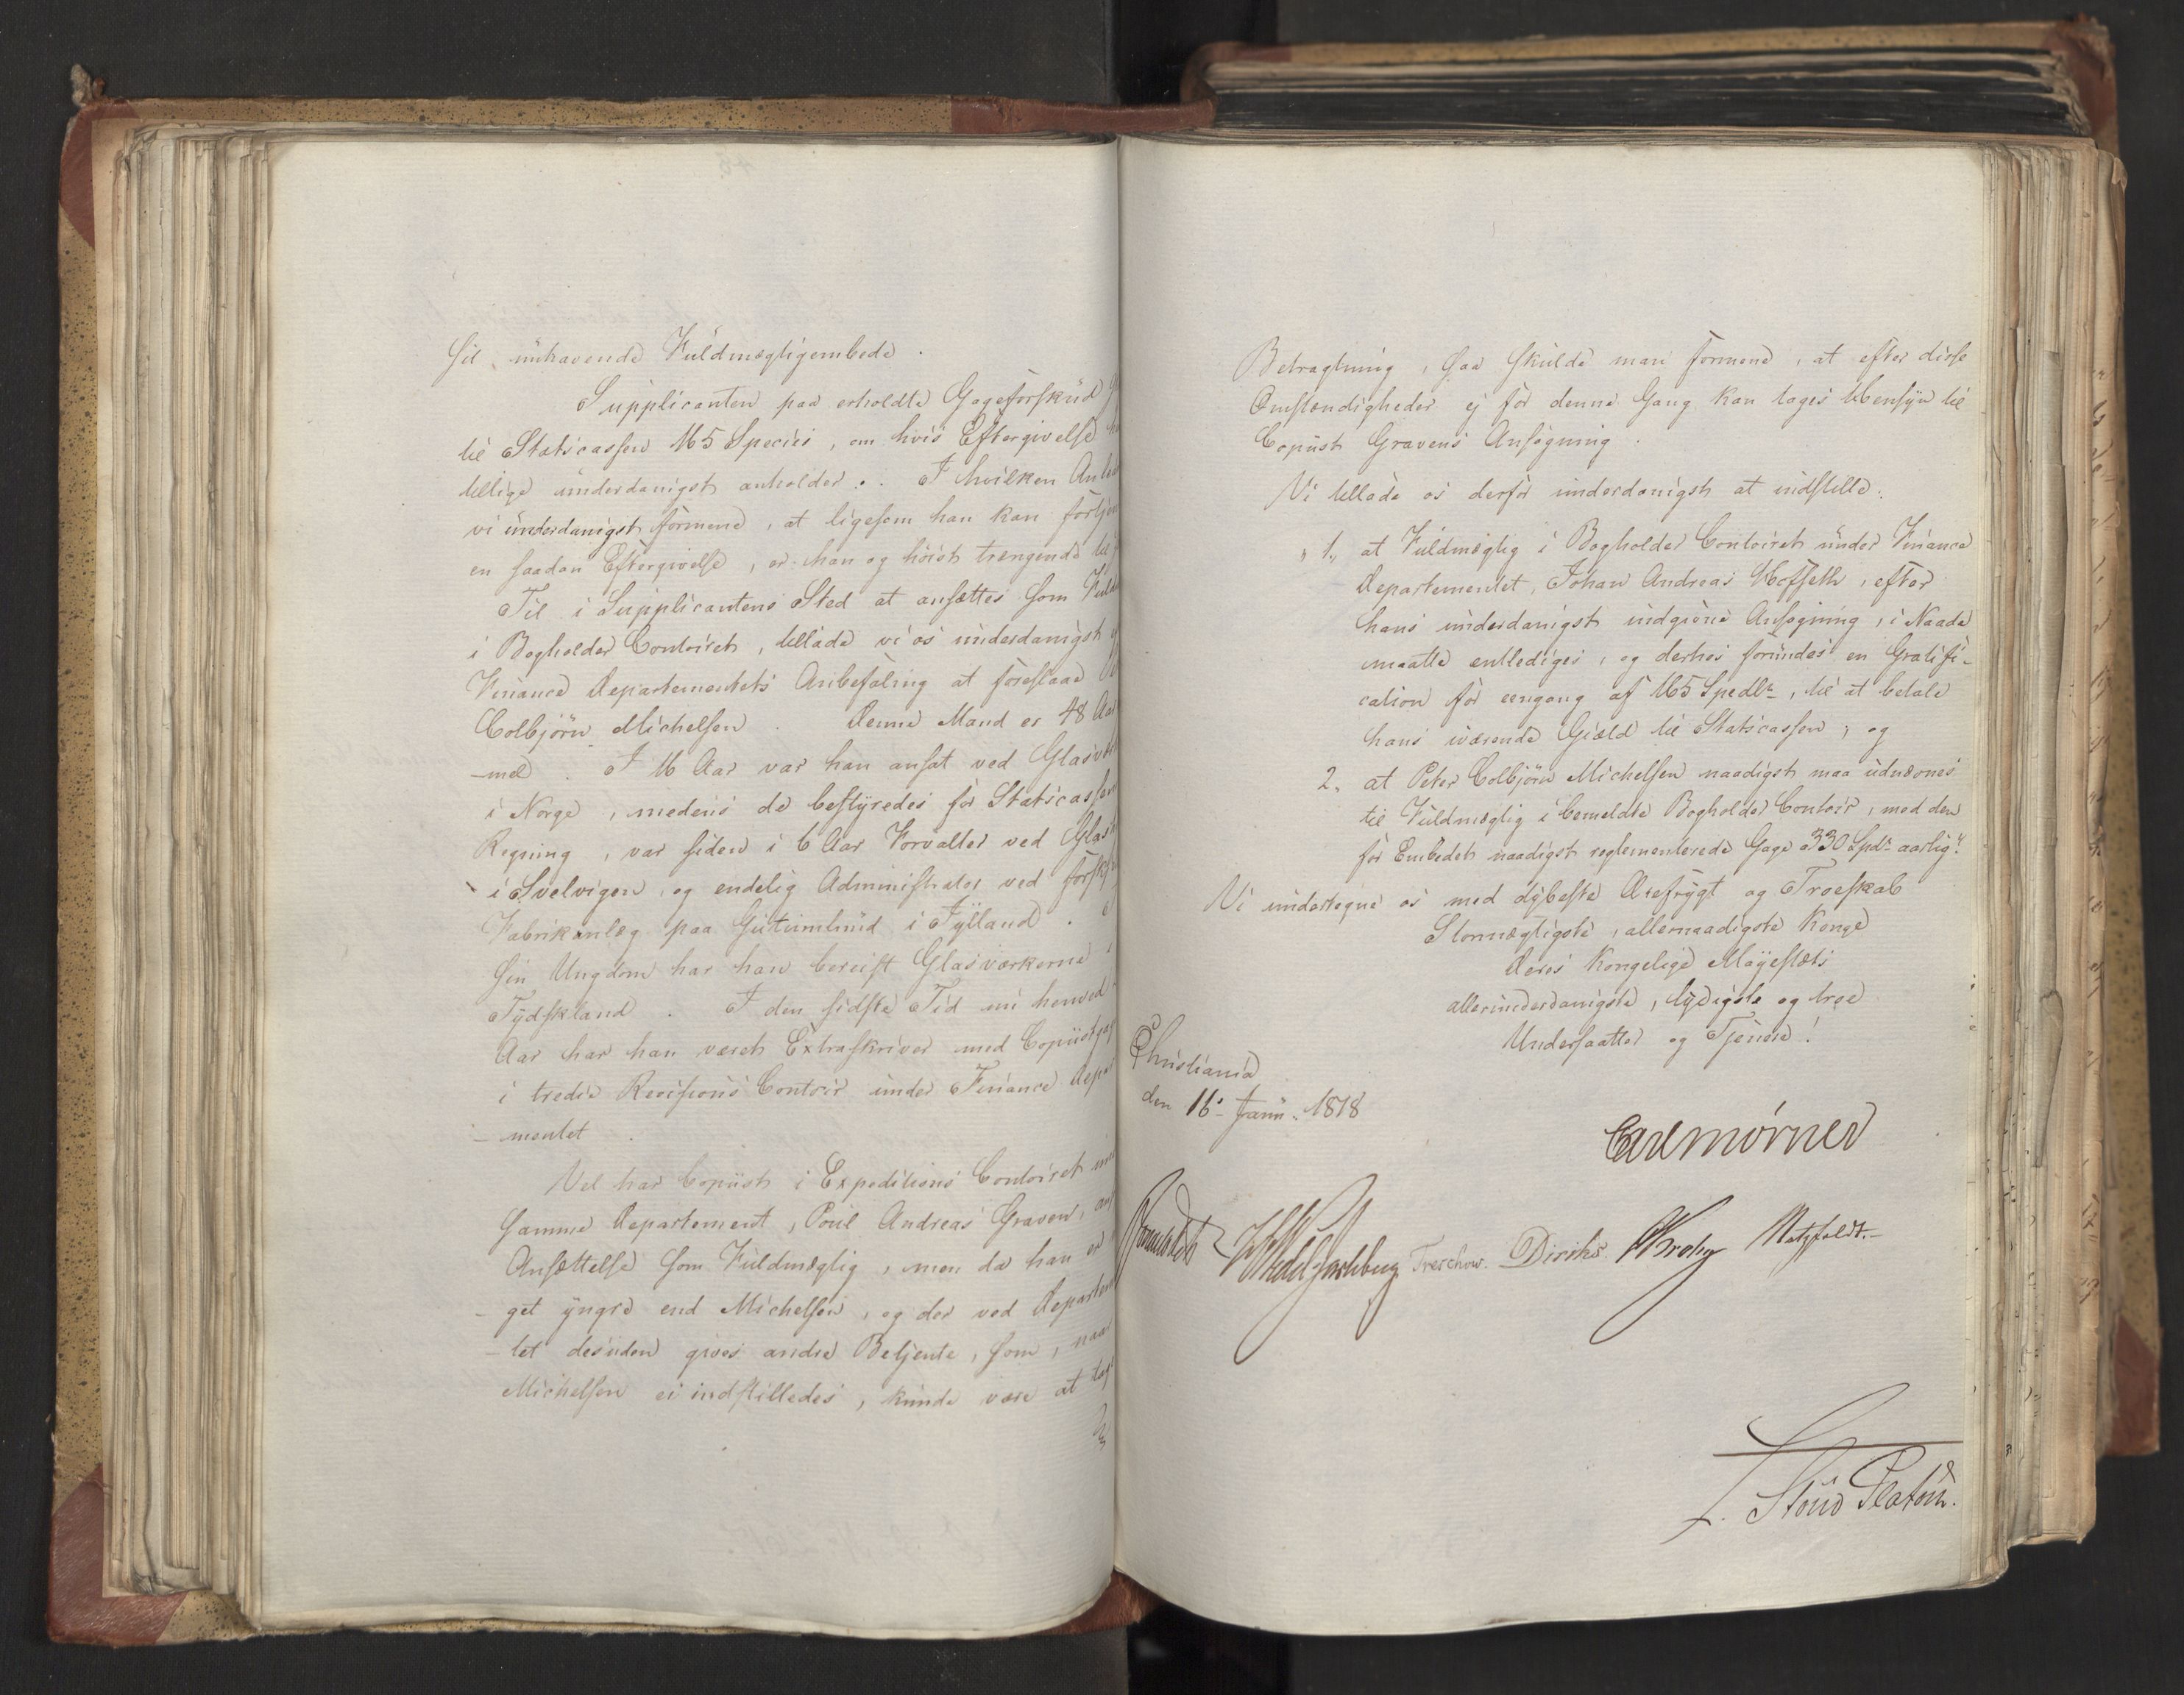 sit innhavende Fuldmægtigembede.
Supplicanten paa erholdte Gageforskud
til Statscassen 165 Species, om hvis Eftergivelse
tillige underdanigst anholder. I hvilken
vi underdanigst formene, at ligesom han kan
en saadan Eftergivelse, er han og höist trængende
Til i Supplicantens Sted at ansættes som
i Bogholder Contoiret, tillade vi os underdanigst
Finance Departementets Anbefaling at foreslaae
Colbjörn Michelsen. Denne Mand er 48 Aar
-mel. I 16 Aar var han ansat ved
i Norge, medens de bestyredes for Statscassens
Regning, var siden i 6 Aar Forvalter ved
i Svelvigen, og endelig Administrator ved
Fabrikanlæg paa i Jylland.
Sin Ungdom har han bereist Glasværkerne i
Tydskland. I den sidste Tid nu henved
Aar har han været Extraskriver med
i tredie Revisions Contoir under Finance
-mentet.
Vel har Copiist i Expeditions Contoiret
samme Departement, Poul Andreas Graven,
Ansættelse som Fuldmægtig, men da han er
get yngre end Michelsen, og der ved
-tet desuden gives andre Betjente, som, naar
Michelsen ei indstilledes, kunde være at
Betragtning, saa skulde man formene, at efter disse
Omstændigheder ej for denne Gang kan tages Hensyn til
Copiist Gravens Ansögning.
Vi tillade os derfor underdanigst at indstille:
"1, at Fuldmægtig i Bogholder Contoiret under Finance
Departementet, Johan Andreas Hoffeth, efter
hans underdanigst indgivne Ansögning, i Naade
maatte entlediges, og derhos forundes en Gratifi-
cation for eengang af 165 Spedlr, til at betale
hans værende Gjæld til Statscassen; og
2, at Peter Colbjörn Michelsen naadigst maa udnævnes
til Fuldmægtig i bemeldte Bogholder Contoir, med den
for Embedet naadigst reglementerede Gage 330 Spdr aarlig."
Vi undertegne os med dybeste Ærefrygt og Troeskab
Stormægtigste, allernaadigste Konge
Deres Kongelige Majestæts
allerunderdanigste, lydigste og troe
Undersaatter og Tjenere!
Christiania
den 16 Janu. 1818
Carl Mörner
Sommerhielm Wedel Jarlsberg Treschow. Diriks. Krohg Motzfeldt.
Stoud Platou.